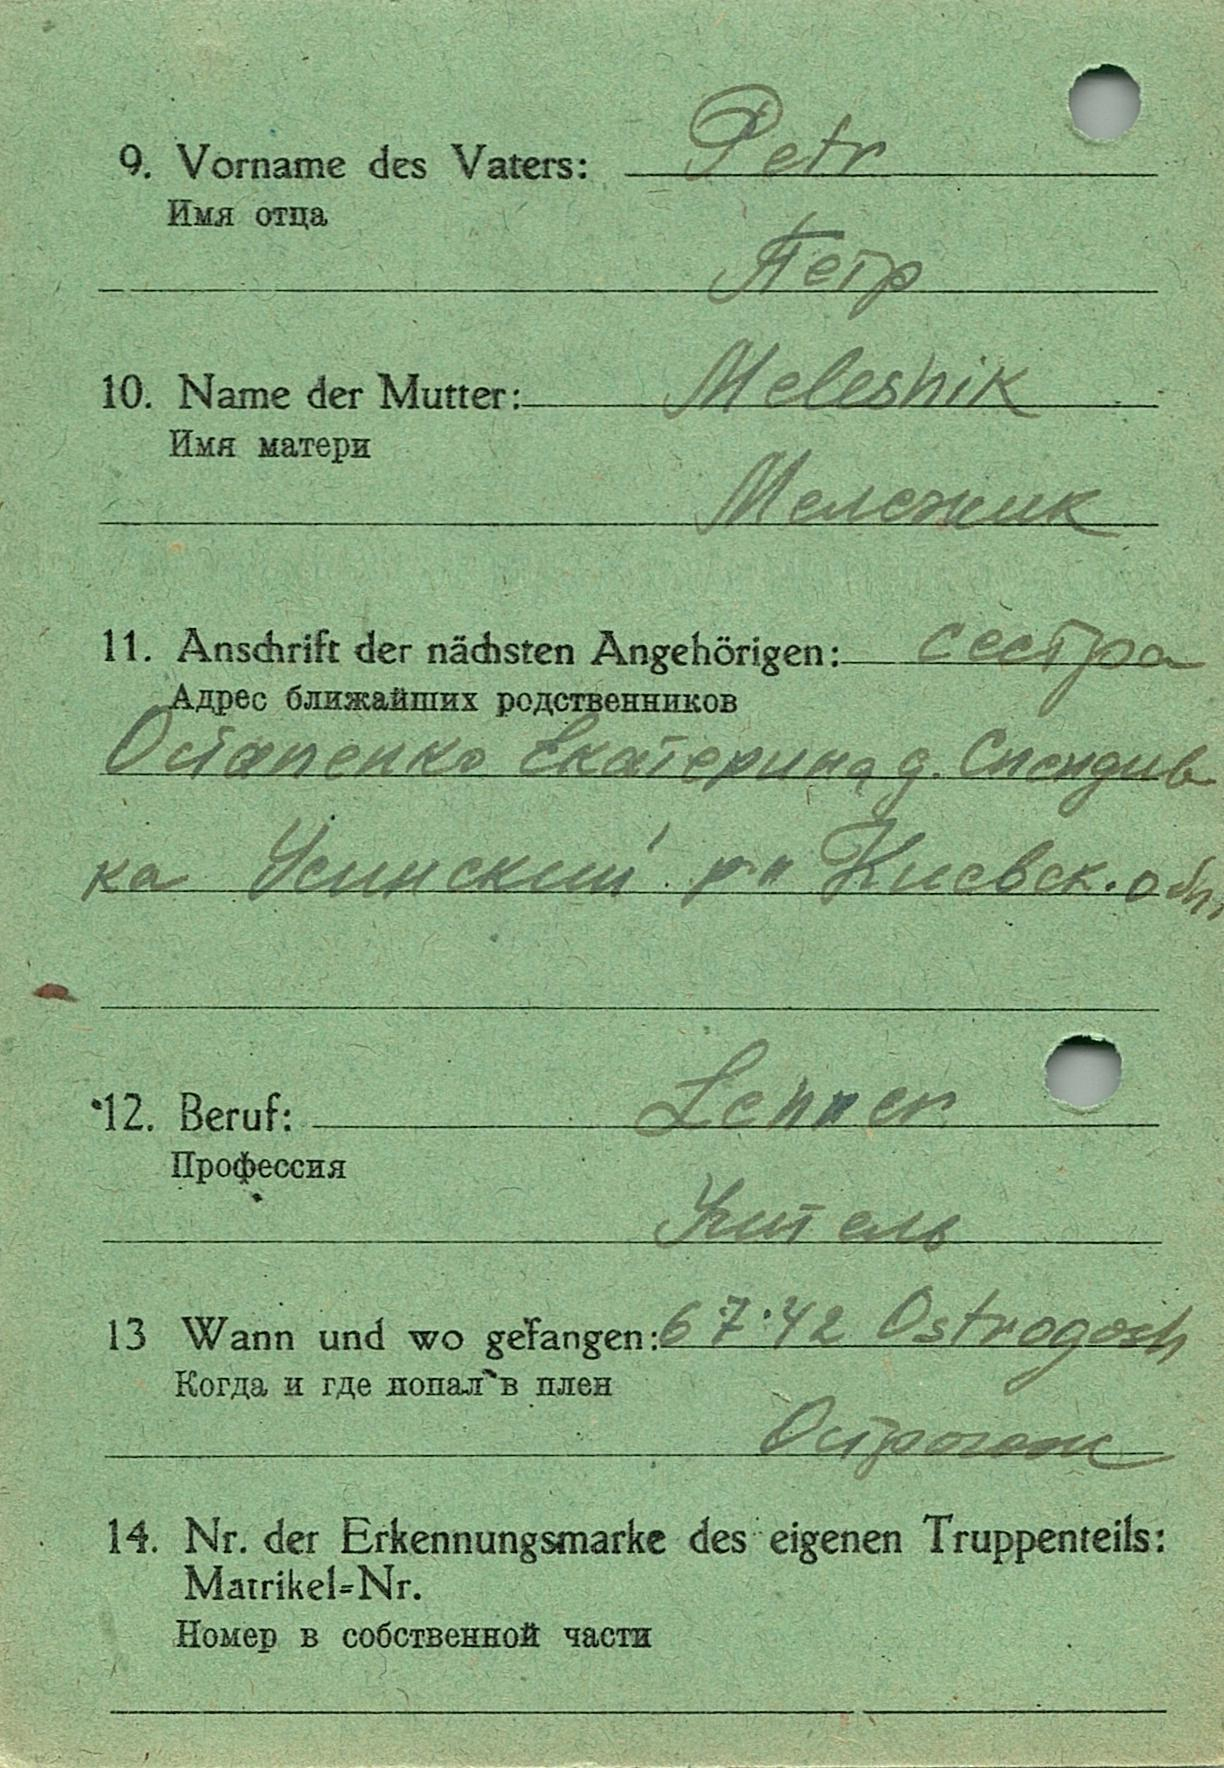 9. Vorname des Vaters: Petr
Имя отца
Петр
10. Name der Mutter: Meleshik
Имя матери
Мележик
11. Anschrift der nächsten Angehörigen: сестра
Адрес ближайших родственников
Остапенко Екатерина д. Спендив
ка Усинский р-н Киевск. обл.
12. Beruf: Lehrer
Профессия
Учитель
13 Wann und wo gefangen: 6 7.42 Ostrogosh
Когда и где попал в плен
Острогож
14. Nr. der Erkennungsmarke des eigenen Truppenteils:
Matrikel=Nr.
Номер в собственной части